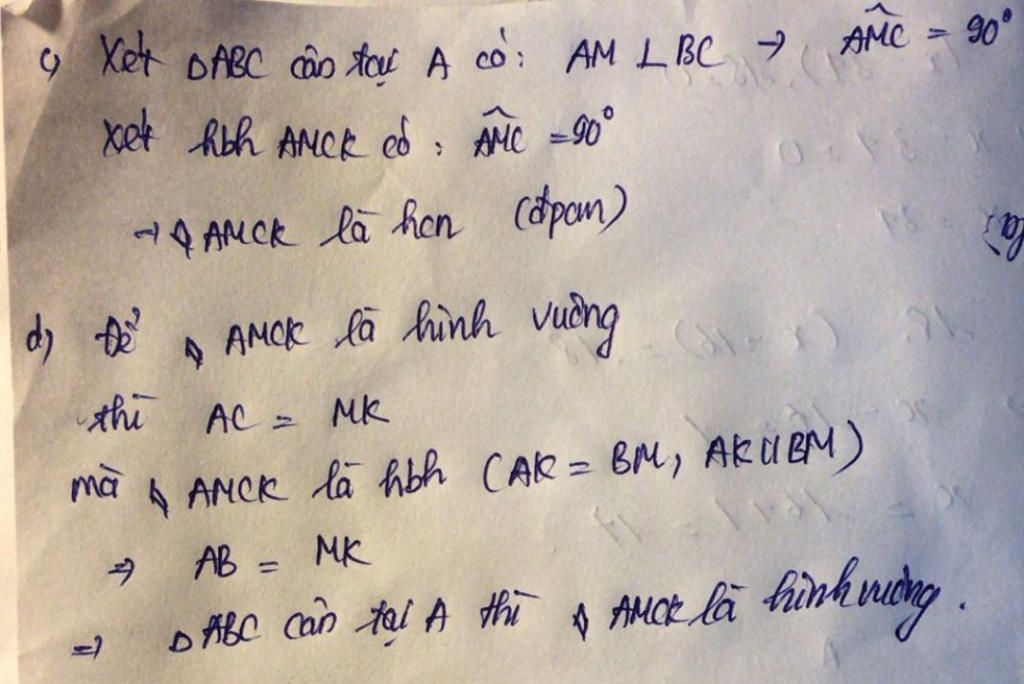 c) Xét ΔABC cân tại A có: AM ⊥ BC → \widehat{AMC} = 90°
Xét hbh AMCK có: \widehat{AMC} = 90°
→ ◊ AMCK là hcn (đpcm)
d) Để ◊ AMCK là hình vuông
thì AC = MK
mà ◊ AMCK là hbh (AK = BM, AK // BM)
⇒ AB = MK
⇒ ΔABC cân tại A thì ◊ AMCK là hình vuông.